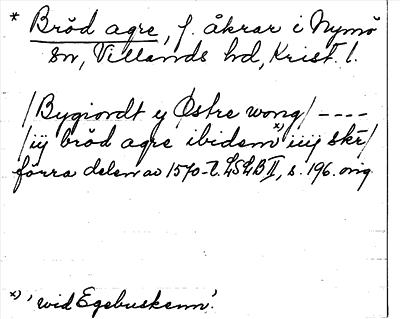 * Bröd agre, f. åkrar i Nymö
sn, Villands hd, Krist. l.
/Bygiordt y Østre wong/ ----
/iÿ bröd agre ibidem x) iiij skr/
förra delen av 1570-t. LSLB II, s. 196. orig
x) 'wid Egebuskenn'.